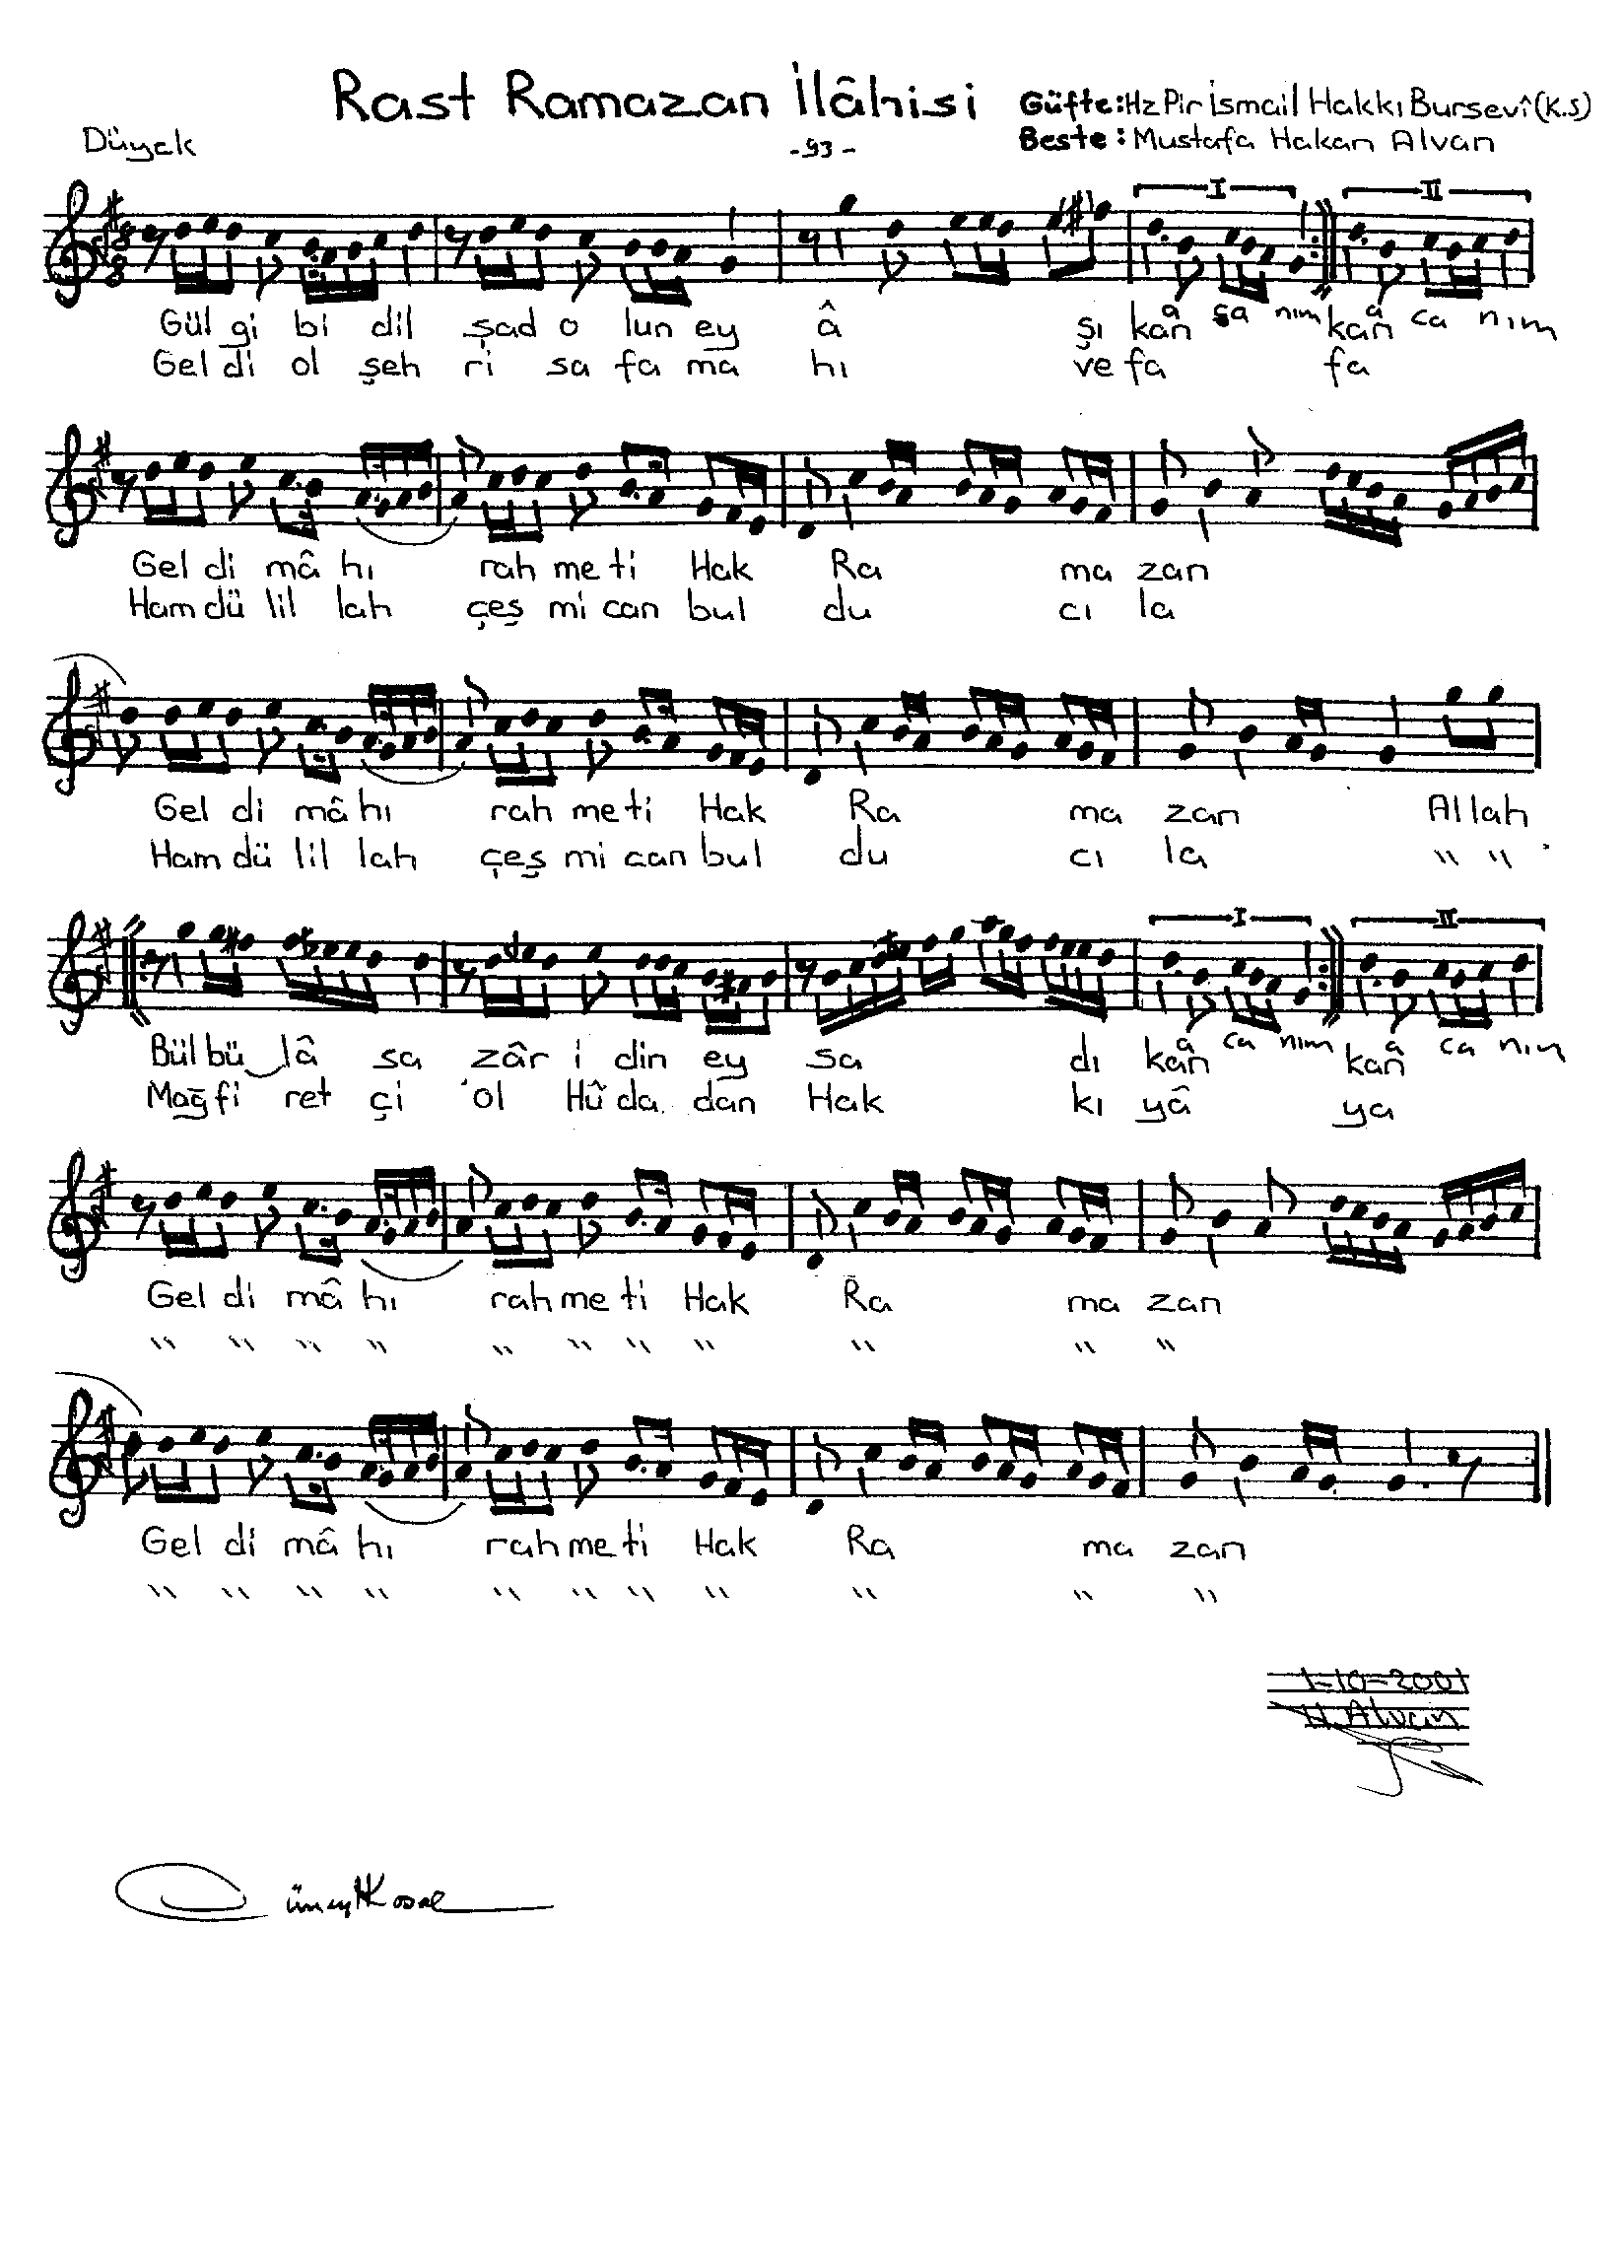 Rast Ramazan İlâhisi
Güfte: Hz Pir İsmail Hakkı Bursevî (K.S)
Düyek
-93-
Beste: Mustafa Hakan Alvan
I II
Gül gi bi dil şad o lun ey â şı kan a ca nım kan a ca nım
Gel di ol şeh ri sa fa ma hı ve fa fa
Gel di mâ hı rah me ti Hak Ra ma zan
Ham dü lil lah çeş mi can bul du cı la
Gel di mâ hı rah me ti Hak Ra ma zan Al lah
Ham dü lil lah çeş mi can bul du cı la " "
I II
Bül bü lâ sa zâr i din ey sa dı kan a ca nım kan a ca nım
Mağ fi ret çi ol Hû da dan Hak kı yâ ya
Gel di mâ hı rah me ti Hak Ra ma zan
" " " " " " " " " " "
Gel di mâ hı rah me ti Hak Ra ma zan
" " " " " " " " " " "
1-10-2001
H. Alvan
Cüneyt Kosal